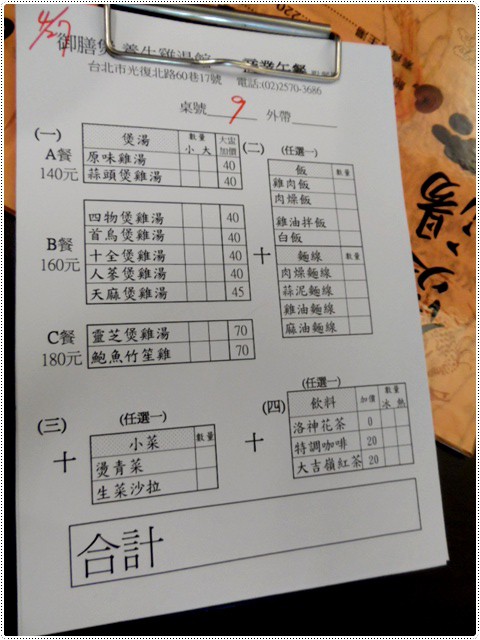 4/27
御膳煲養生雞湯館
商業午餐
台北市光復北路60巷17號 電話:(02)2570-3686
桌號 9 外帶
(一)
煲湯 數量 小 大 大盅加價
A餐 140元
原味雞湯 40
蒜頭煲雞湯 40
B餐 160元
四物煲雞湯 40
首烏煲雞湯 40
十全煲雞湯 40
人蔘煲雞湯 40
天麻煲雞湯 45
C餐 180元
靈芝煲雞湯 70
鮑魚竹笙雞 70
(二) (任選一)
十
飯 數量
雞肉飯
肉燥飯
雞油拌飯
白飯
麵線 數量
肉燥麵線
蒜泥麵線
雞油麵線
麻油麵線
(三) (任選一)
十
小菜 數量
燙青菜
生菜沙拉
(四) (任選一)
十
飲料 加價 數量 冰 熱
洛神花茶 0
特調咖啡 20
大吉嶺紅茶 20
合計